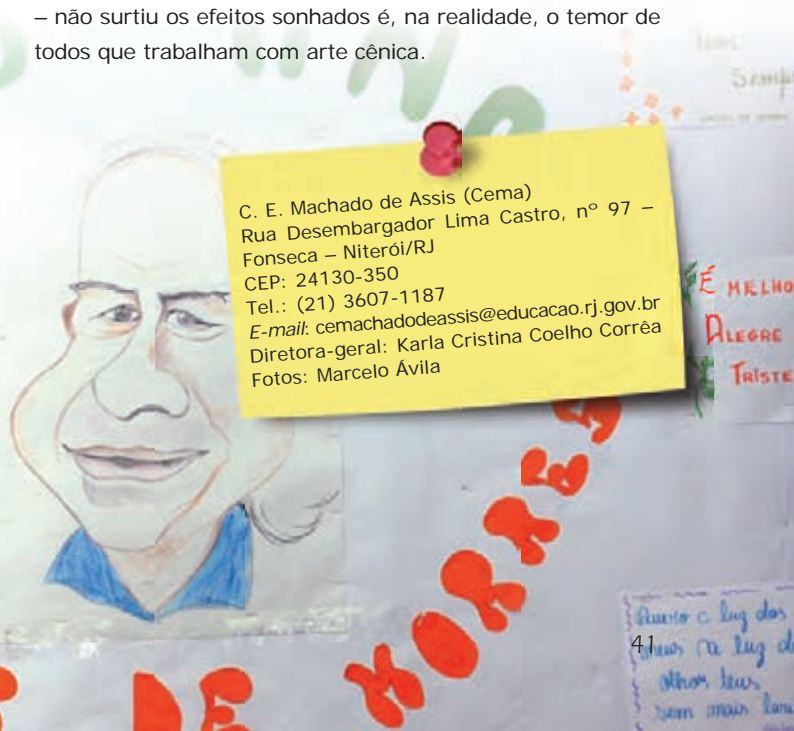 – não surtiu os efeitos sonhados é, na realidade, o temor de
todos que trabalham com arte cênica.
C. E. Machado de Assis (Cema)
Rua Desembargador Lima Castro, nº 97 –
Fonseca – Niterói/RJ
CEP: 24130-350
Tel.: (21) 3607-1187
E-mail: cemachadodeassis@educacao.rj.gov.br
Diretora-geral: Karla Cristina Coelho Corrêa
Fotos: Marcelo Ávila
É MELHO
ALEGRE
TRISTE
DE MORAES
luz dos
luz d
olhos teus
sem mais
41